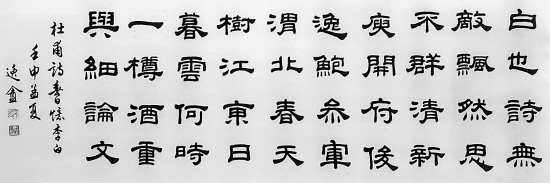 白也詩無
敵飄然思
不群清新
庾開府俊
逸鮑叅軍
渭北春天
樹江東日
暮雲何時
一樽酒重
與細論文
杜甫詩春日憶李白
壬申孟夏
逸盦